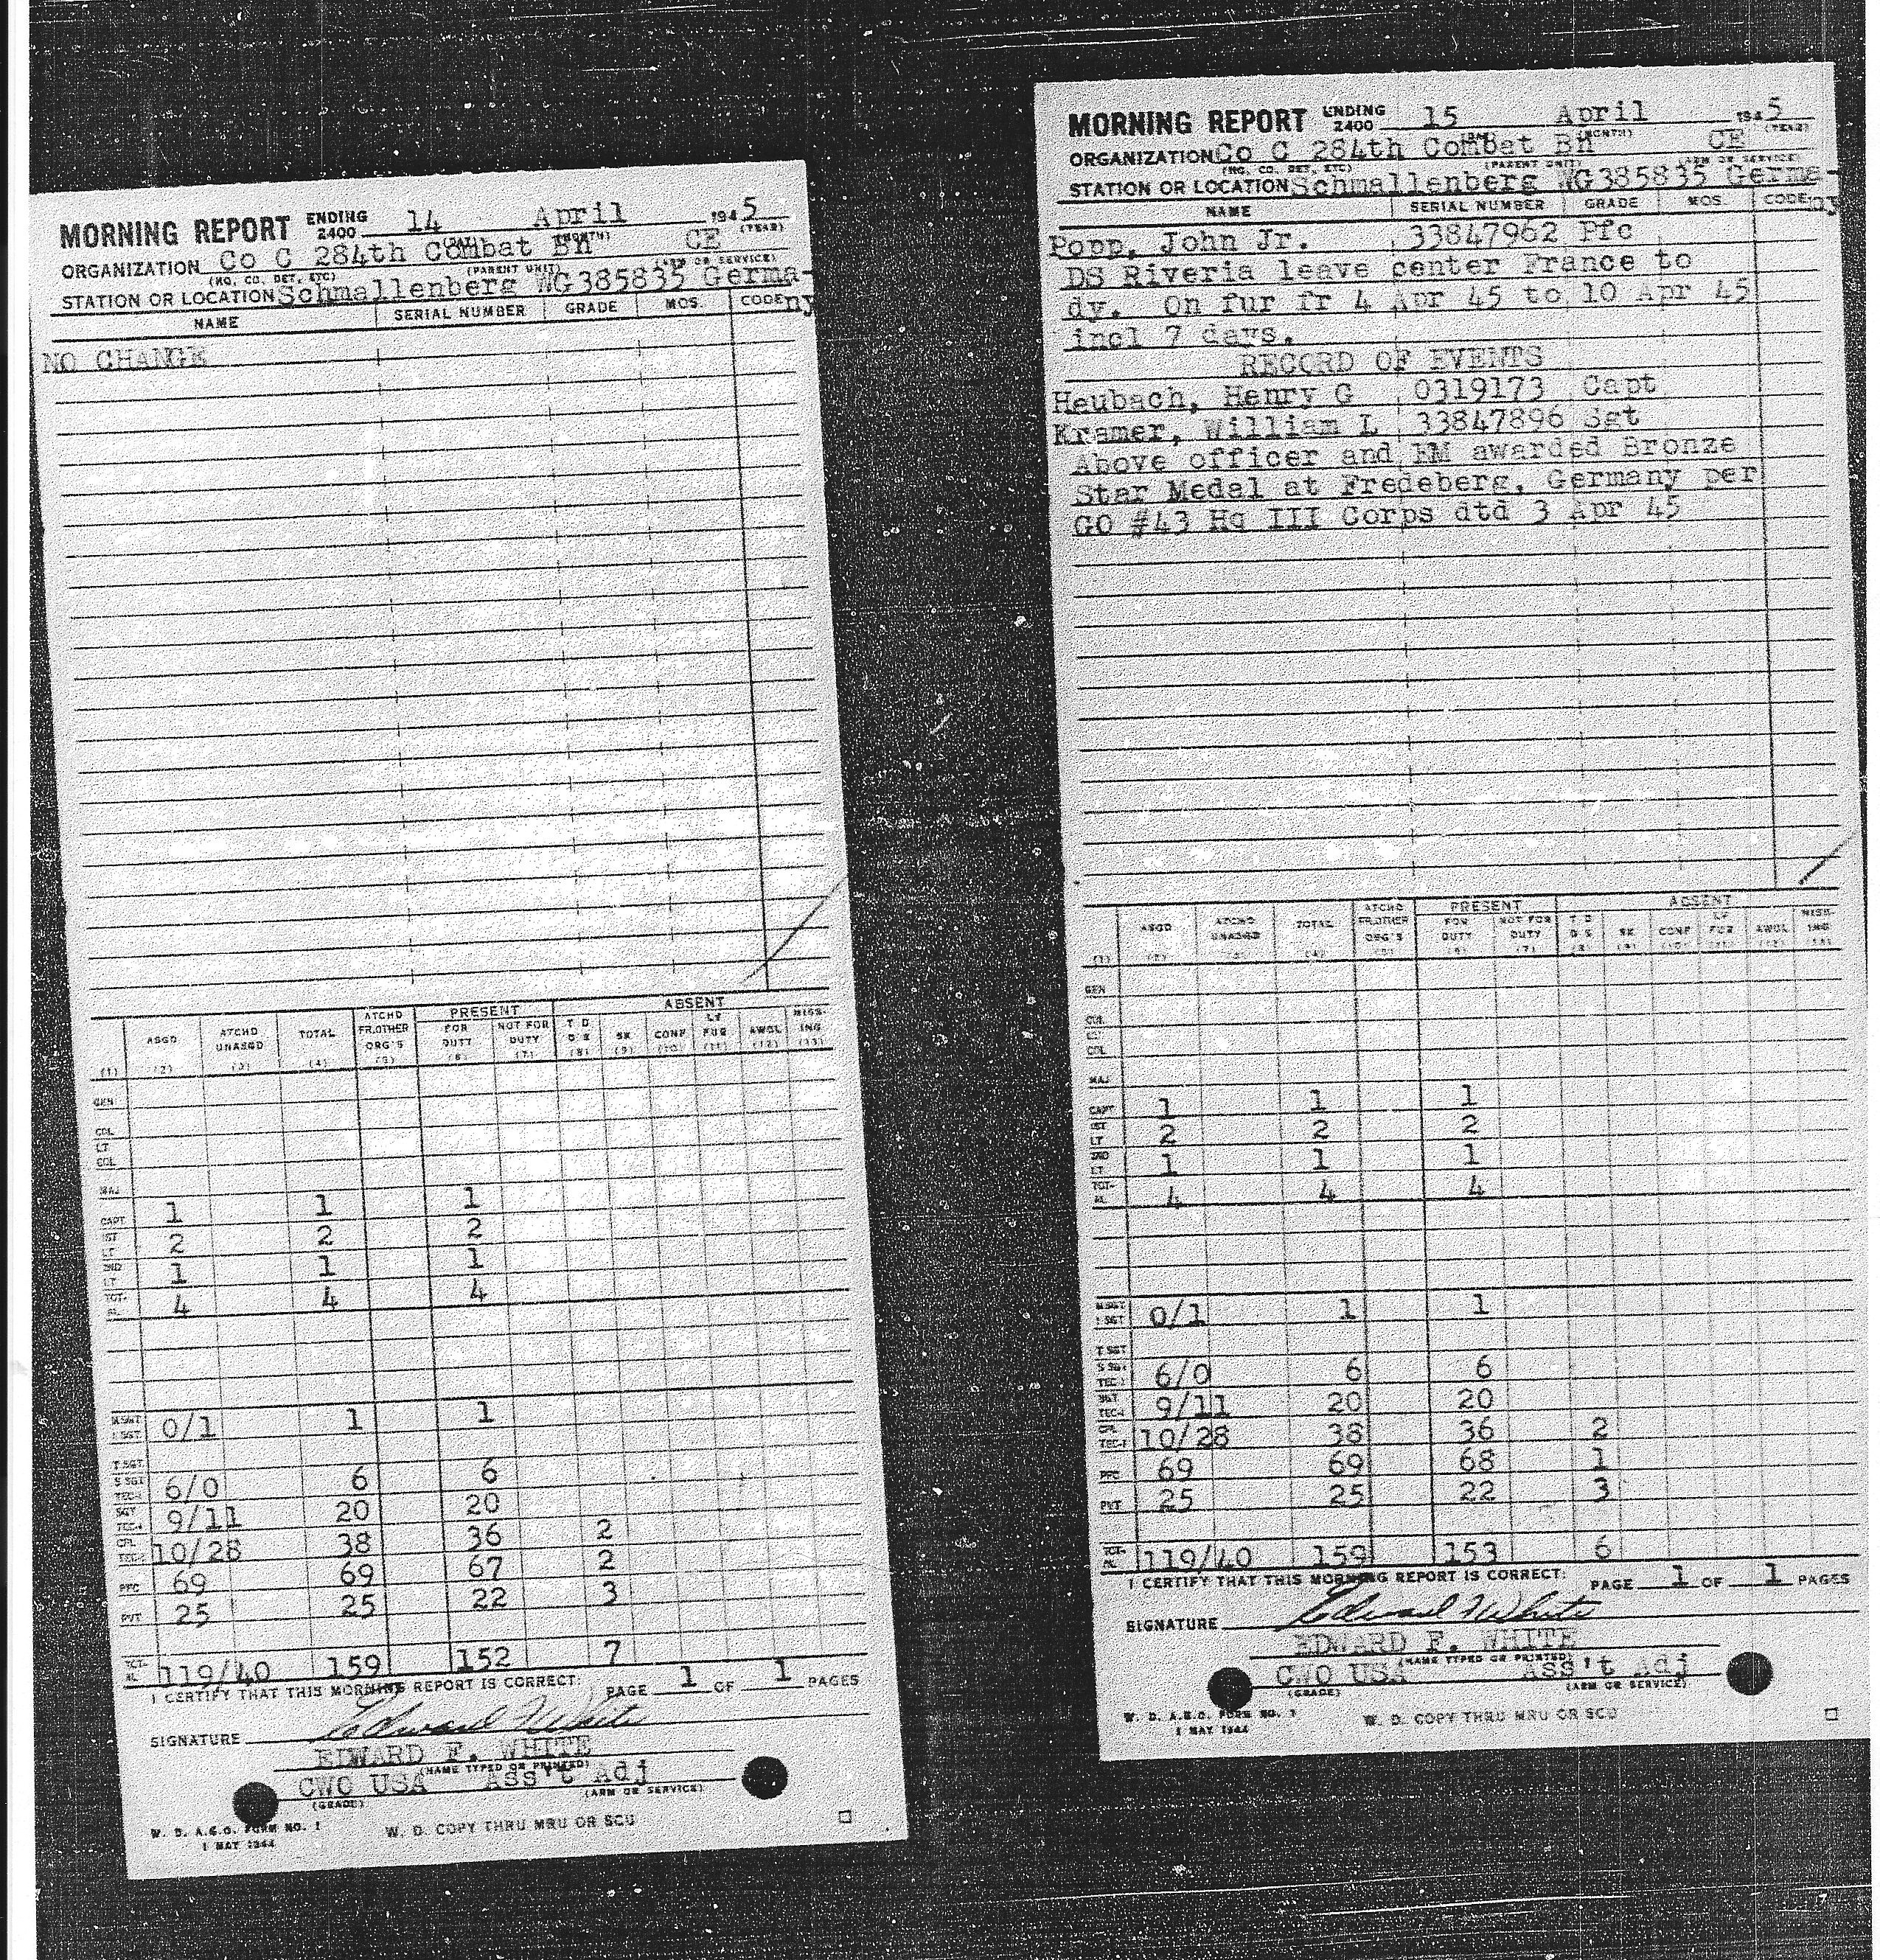 MORNING REPORT ENDING 2400 14 April 1945
(DAY) (MONTH) (YEAR)
ORGANIZATION Co C 284th Combat Bn CE
(HQ, CO, DET, ETC) (PARENT UNIT) (ARM OR SERVICE)
STATION OR LOCATION Schmallenberg WG385835 Germa-
NAME SERIAL NUMBER GRADE MOS. CODE ny
NO CHANGE
ATCHD PRESENT ABSENT
ASGD ATCHD UNASGD TOTAL FR.OTHER ORG'S FOR DUTY NOT FOR DUTY T D D S SK CONF LV FUR AWOL MISSING
(1) (2) (3) (4) (5) (6) (7) (8) (9) (10) (11) (12) (13)
GEN
COL
LT COL
MAJ
CAPT 1 1 1
1ST LT 2 2 2
2ND LT 1 1 1
TOTAL 4 4 4
M SGT 1 SGT 0/1 1 1
T SGT
S SGT TEC-3 6/0 6 6
SGT TEC-4 9/11 20 20
CPL TEC-5 10/28 38 36 2
PFC 69 69 67 2
PVT 25 25 22 3
TOTAL 119/40 159 152 7
I CERTIFY THAT THIS MORNING REPORT IS CORRECT: PAGE 1 OF 1 PAGES
SIGNATURE Edward F White
EDWARD F. WHITE
(NAME TYPED OR PRINTED)
CWO USA Ass't Adj
(GRADE) (ARM OR SERVICE)
W. D. A.G.O. FORM NO. 1
1 MAY 1944
W. D. COPY THRU MRU OR SCU
MORNING REPORT ENDING 2400 15 April 1945
(DAY) (MONTH) (YEAR)
ORGANIZATION Co C 284th Combat Bn CE
(HQ, CO, DET, ETC) (PARENT UNIT) (ARM OR SERVICE)
STATION OR LOCATION Schmallenberg WG385835 Germa-
NAME SERIAL NUMBER GRADE MOS. CODE ny
Popp, John Jr. 33847962 Pfc
DS Riveria leave center France to
dy. On fur fr 4 Apr 45 to 10 Apr 45
incl 7 days.
RECORD OF EVENTS
Heubach, Henry G 0319173 Capt
Kramer, William L 33847896 Sgt
Above officer and EM awarded Bronze
Star Medal at Fredeberg, Germany per
GO #43 Hq III Corps dtd 3 Apr 45
ATCHD PRESENT ABSENT
ASGD ATCHD UNASGD TOTAL FR.OTHER ORG'S FOR DUTY NOT FOR DUTY T D D S SK CONF LV FUR AWOL MISSING
(1) (2) (3) (4) (5) (6) (7) (8) (9) (10) (11) (12) (13)
GEN
COL
LT COL
MAJ
CAPT 1 1 1
1ST LT 2 2 2
2ND LT 1 1 1
TOTAL 4 4 4
M SGT 1 SGT 0/1 1 1
T SGT
S SGT TEC-3 6/0 6 6
SGT TEC-4 9/11 20 20
CPL TEC-5 10/28 38 36 2
PFC 69 69 68 1
PVT 25 25 22 3
TOTAL 119/40 159 153 6
I CERTIFY THAT THIS MORNING REPORT IS CORRECT: PAGE 1 OF 1 PAGES
SIGNATURE Edward F White
EDWARD F. WHITE
(NAME TYPED OR PRINTED)
CWO USA Ass't Adj
(GRADE) (ARM OR SERVICE)
W. D. A.G.O. FORM NO. 1
1 MAY 1944
W. D. COPY THRU MRU OR SCU